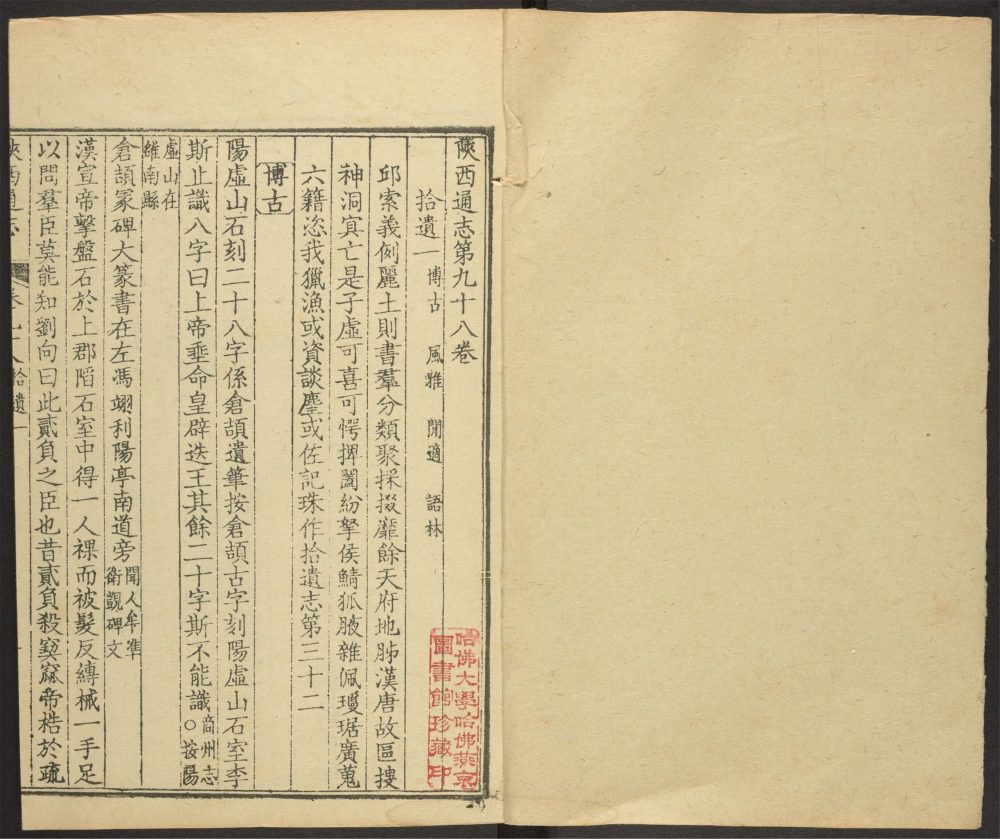 陝西通志第九十八卷
拾遺一 博古 風雅 閒適 語林
邱索義例麗土則書羣分類聚採掇靡餘天府地肺漢唐故區搜
神洞寘亡是子虛可喜可愕捭闔紛拏侯鯖狐腋雜佩瓊琚廣蒐
六籍恣我獵漁或資談麈或佐記珠作拾遺志第三十二
博古
陽虛山石刻二十八字係倉頡遺筆按倉頡古字刻陽虛山石室李
斯止識八字曰上帝垂命皇辟迭王其餘二十字斯不能識○商州志按陽
虛山在雒南縣
倉頡冢碑大篆書在左馮翊利陽亭南道旁聞人牟準衛覬碑文
漢宣帝擊盤石於上郡陷石室中得一人裸而被髮反縛械一手足
以問羣臣莫能知劉向曰此貳負之臣也昔貳負殺窫窳帝梏於疏
陝西通志 卷九十八 拾遺一
哈佛大學哈佛燕京
圖書館珍藏印